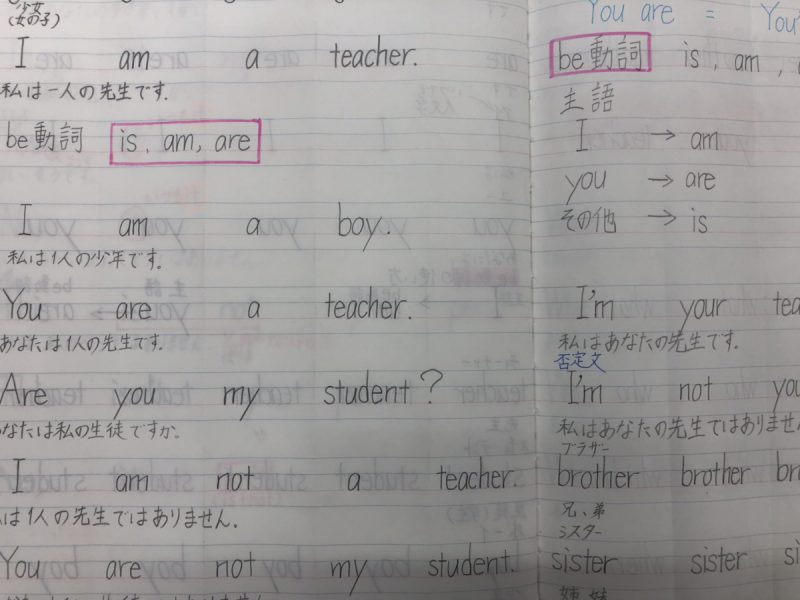 少女
(女の子)
I am a teacher.
私は一人の先生です.
be動詞 is, am, are
I am a boy.
私は1人の少年です.
You are a teacher.
あなたは1人の先生です.
Are you my student?
なたは私の生徒ですか.
I am not a teacher.
は1人の先生ではありません.
You are not my student.
You are = You'
be動詞 is, am,
主語
I → am
you → are
その他 → is
I'm your tea
私はあなたの先生です.
否定文
I'm not you
私はあなたの先生ではありません
ブラザー
brother brother bro
兄、弟
シスター
sister sister si
姉 妹